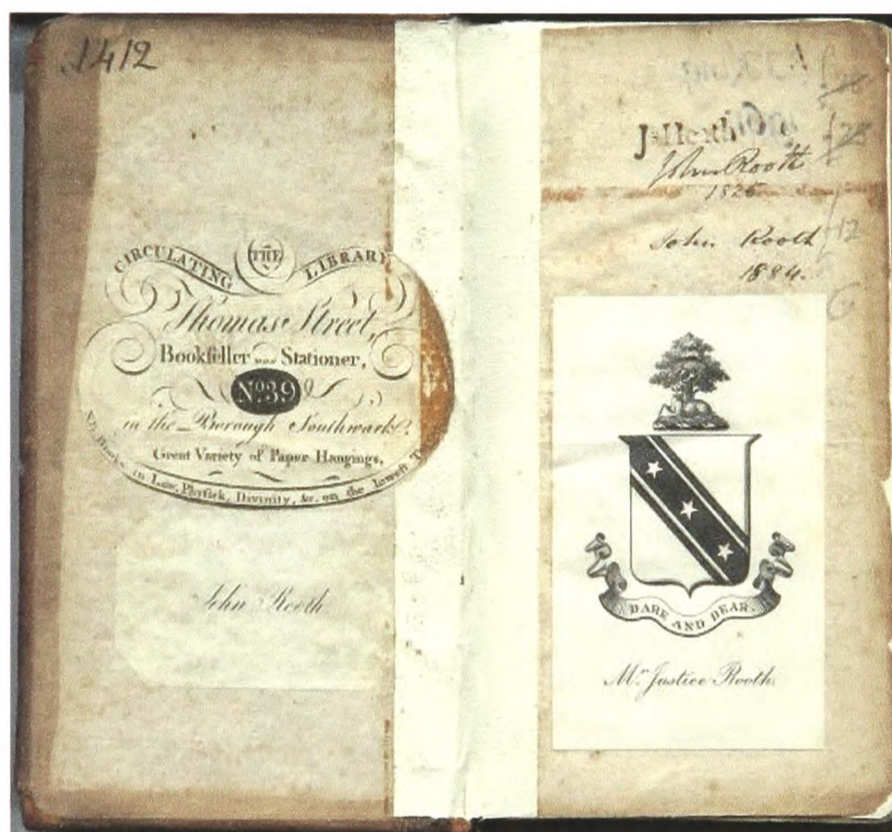 1412
THE
CIRCULATING LIBRARY
Thomas Street,
Bookſeller and Stationer,
No. 39
in the Borough Southwark.
Great Variety of Paper Hangings.
Books in Law, Phyſick, Divinity, &c. on the loweſt
John Rooth
J. Heath
John Rooth
1826
John Rooth
1884.
12
DARE AND BEAR.
Mr. Justice Rooth.